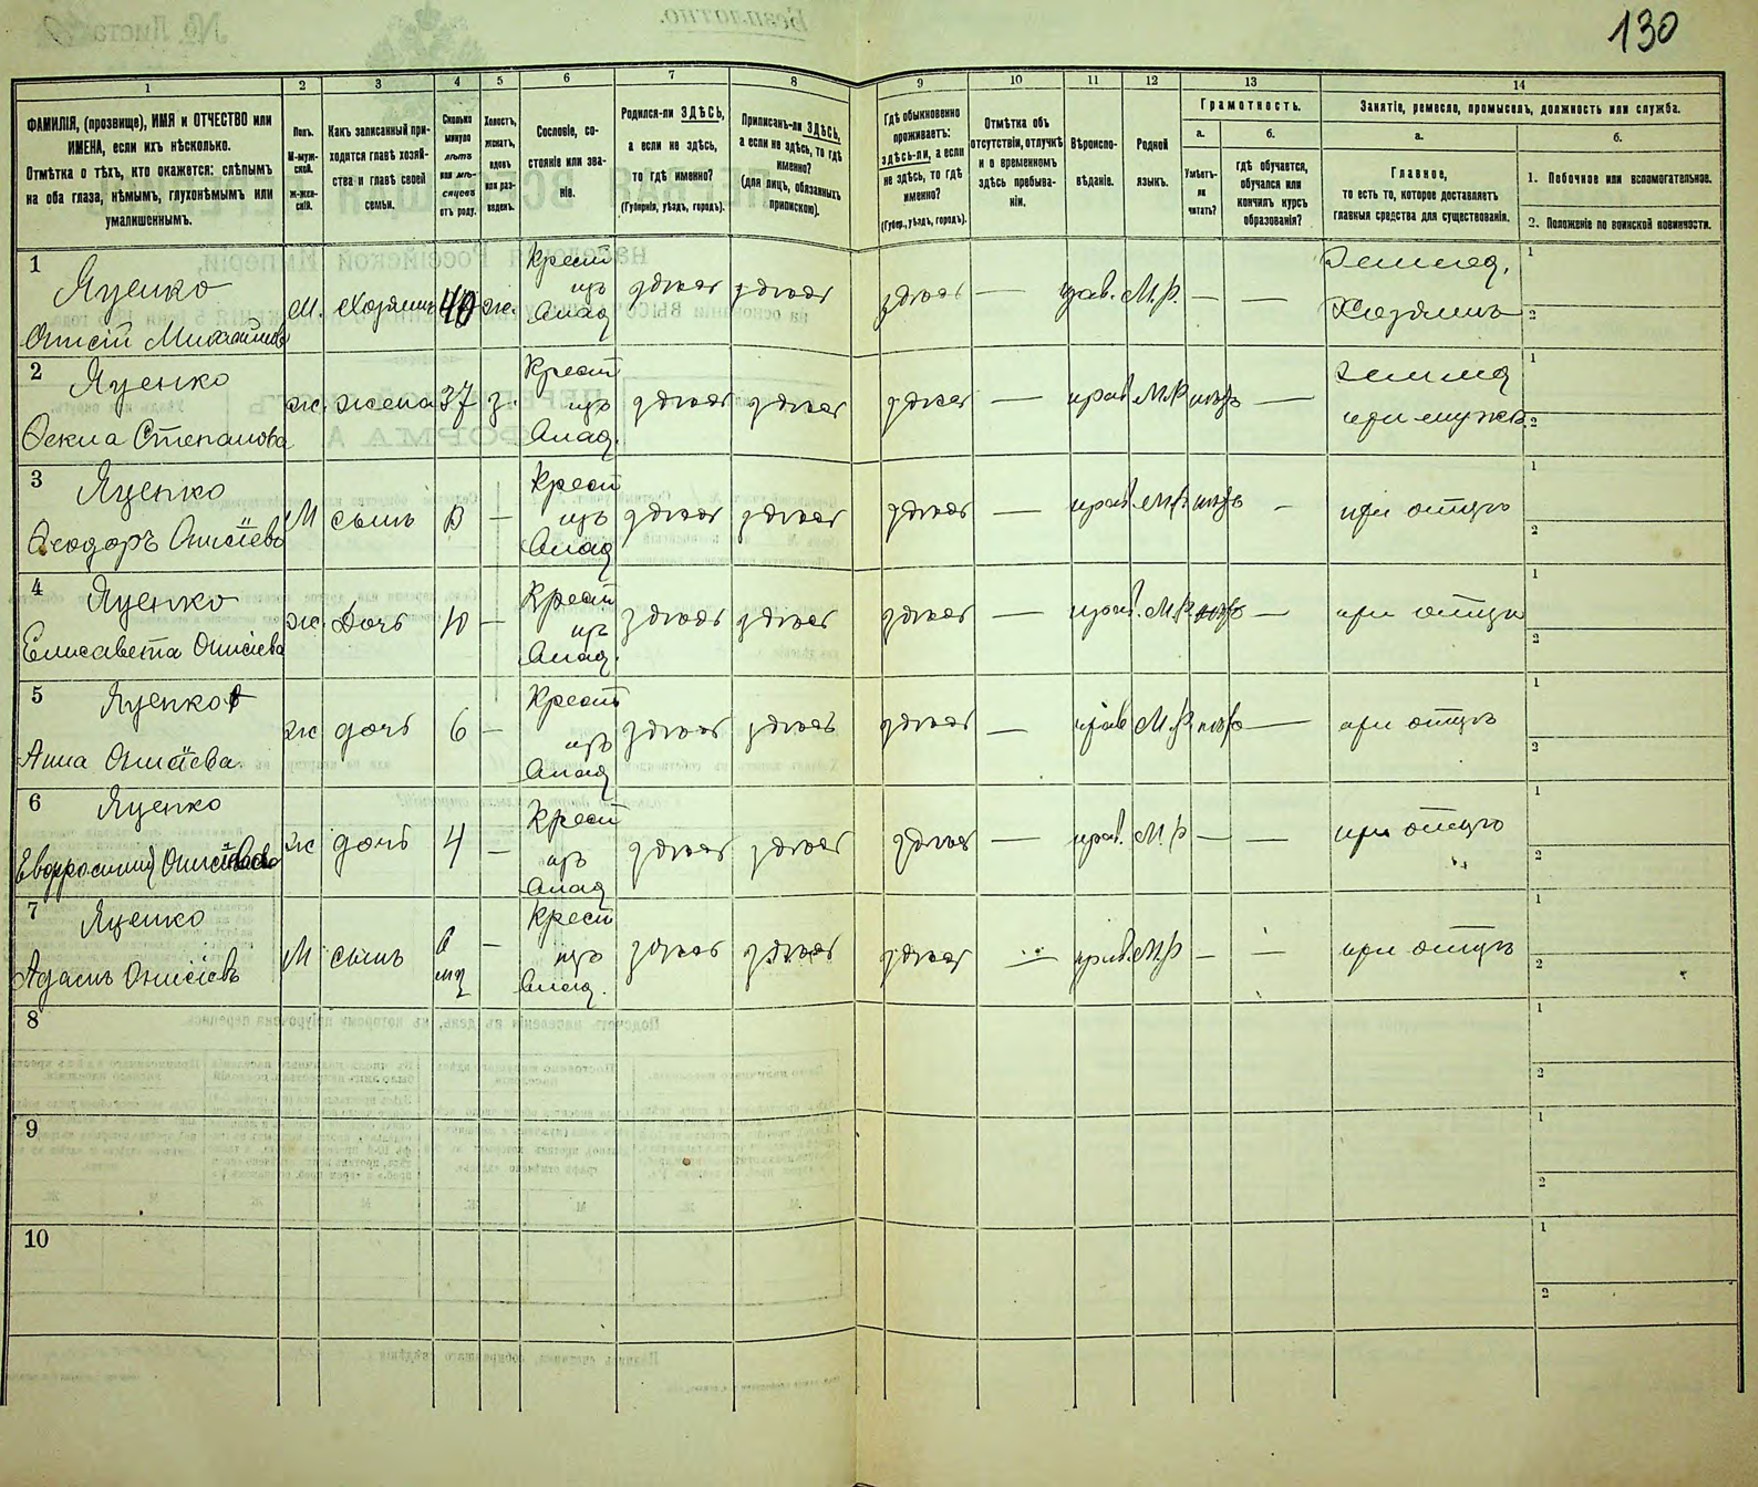 130
1 2 3 4 5 6 7 8 9 10 11 12 13 14
ФАМИЛІЯ, (прозвище), ИМЯ и ОТЧЕСТВО или
ИМЕНА, если ихъ нѣсколько.
Отмѣтка о тѣхъ, кто окажется: слѣпымъ
на оба глаза, нѣмымъ, глухонѣмымъ или
умалишеннымъ.
Полъ.
М-муж-
ской.
Ж-жен-
скій.
Какъ записанный при-
ходится главѣ хозяй-
ства и главѣ своей
семьи.
Сколько
минуло
лѣтъ
или мѣ-
сяцевъ
отъ роду.
Холостъ,
женатъ,
вдовъ
или раз-
веденъ.
Сословіе, со-
стояніе или зва-
ніе.
Родился-ли ЗДѢСЬ,
а если не здѣсь,
то гдѣ именно?
(Губернія, уѣздъ, городъ).
Приписанъ-ли ЗДѢСЬ,
а если не здѣсь, то гдѣ
именно?
(для лицъ, обязанныхъ
припискою).
Гдѣ обыкновенно
проживаетъ:
здѣсь-ли, а если
не здѣсь, то гдѣ
именно?
(Губер., уѣздъ, городъ).
Отмѣтка объ
отсутствіи, отлучкѣ
и о временномъ
здѣсь пребыва-
ніи.
Вѣроиспо-
вѣданіе.
Родной
языкъ.
Грамотность.
а.
Умѣетъ-
ли
читать?
б.
Гдѣ обучается,
обучался или
кончилъ курсъ
образованія?
Занятіе, ремесло, промыселъ, должность или служба.
а.
Главное,
то есть то, которое доставляетъ
главныя средства для существованія.
б.
1. Побочное или вспомогательное.
2. Положеніе по воинской повинности.
1 Яценко
Онисій Михайловъ М. Хозяинъ 40 ж. Крест изъ здѣсь здѣсь здѣсь — прав. М.р. — — Землед. Хозяинъ 1 2
2 Яценко
Степанова ж. жена 37 з. Крест изъ здѣсь здѣсь здѣсь — прав. М.р. — при мужѣ 1 2
3 Яценко
Ѳеодоръ Онисіевъ М сынъ — Крест изъ здѣсь здѣсь здѣсь — прав. М.р. - при отцѣ 1 2
4 Яценко
Елисавета Онисіева ж. Дочь 10 — Крест изъ здѣсь здѣсь здѣсь — прав. М.р. — при отцѣ 1 2
5 Яценко
Анна Онисіева. ж дочь 6 — Крест изъ здѣсь здѣсь здѣсь — прав М.р — при отцѣ 1 2
6 Яценко
Онисіева ж дочь 4 — Крест изъ здѣсь здѣсь здѣсь — прав. М.р — — при отцѣ 1 2
7 Яценко
Адамъ Онисіевъ М сынъ 6 мц — Крест изъ здѣсь здѣсь здѣсь — прав. М.р — — при отцѣ 1 2
8 1 2
9 1 2
10 1 2